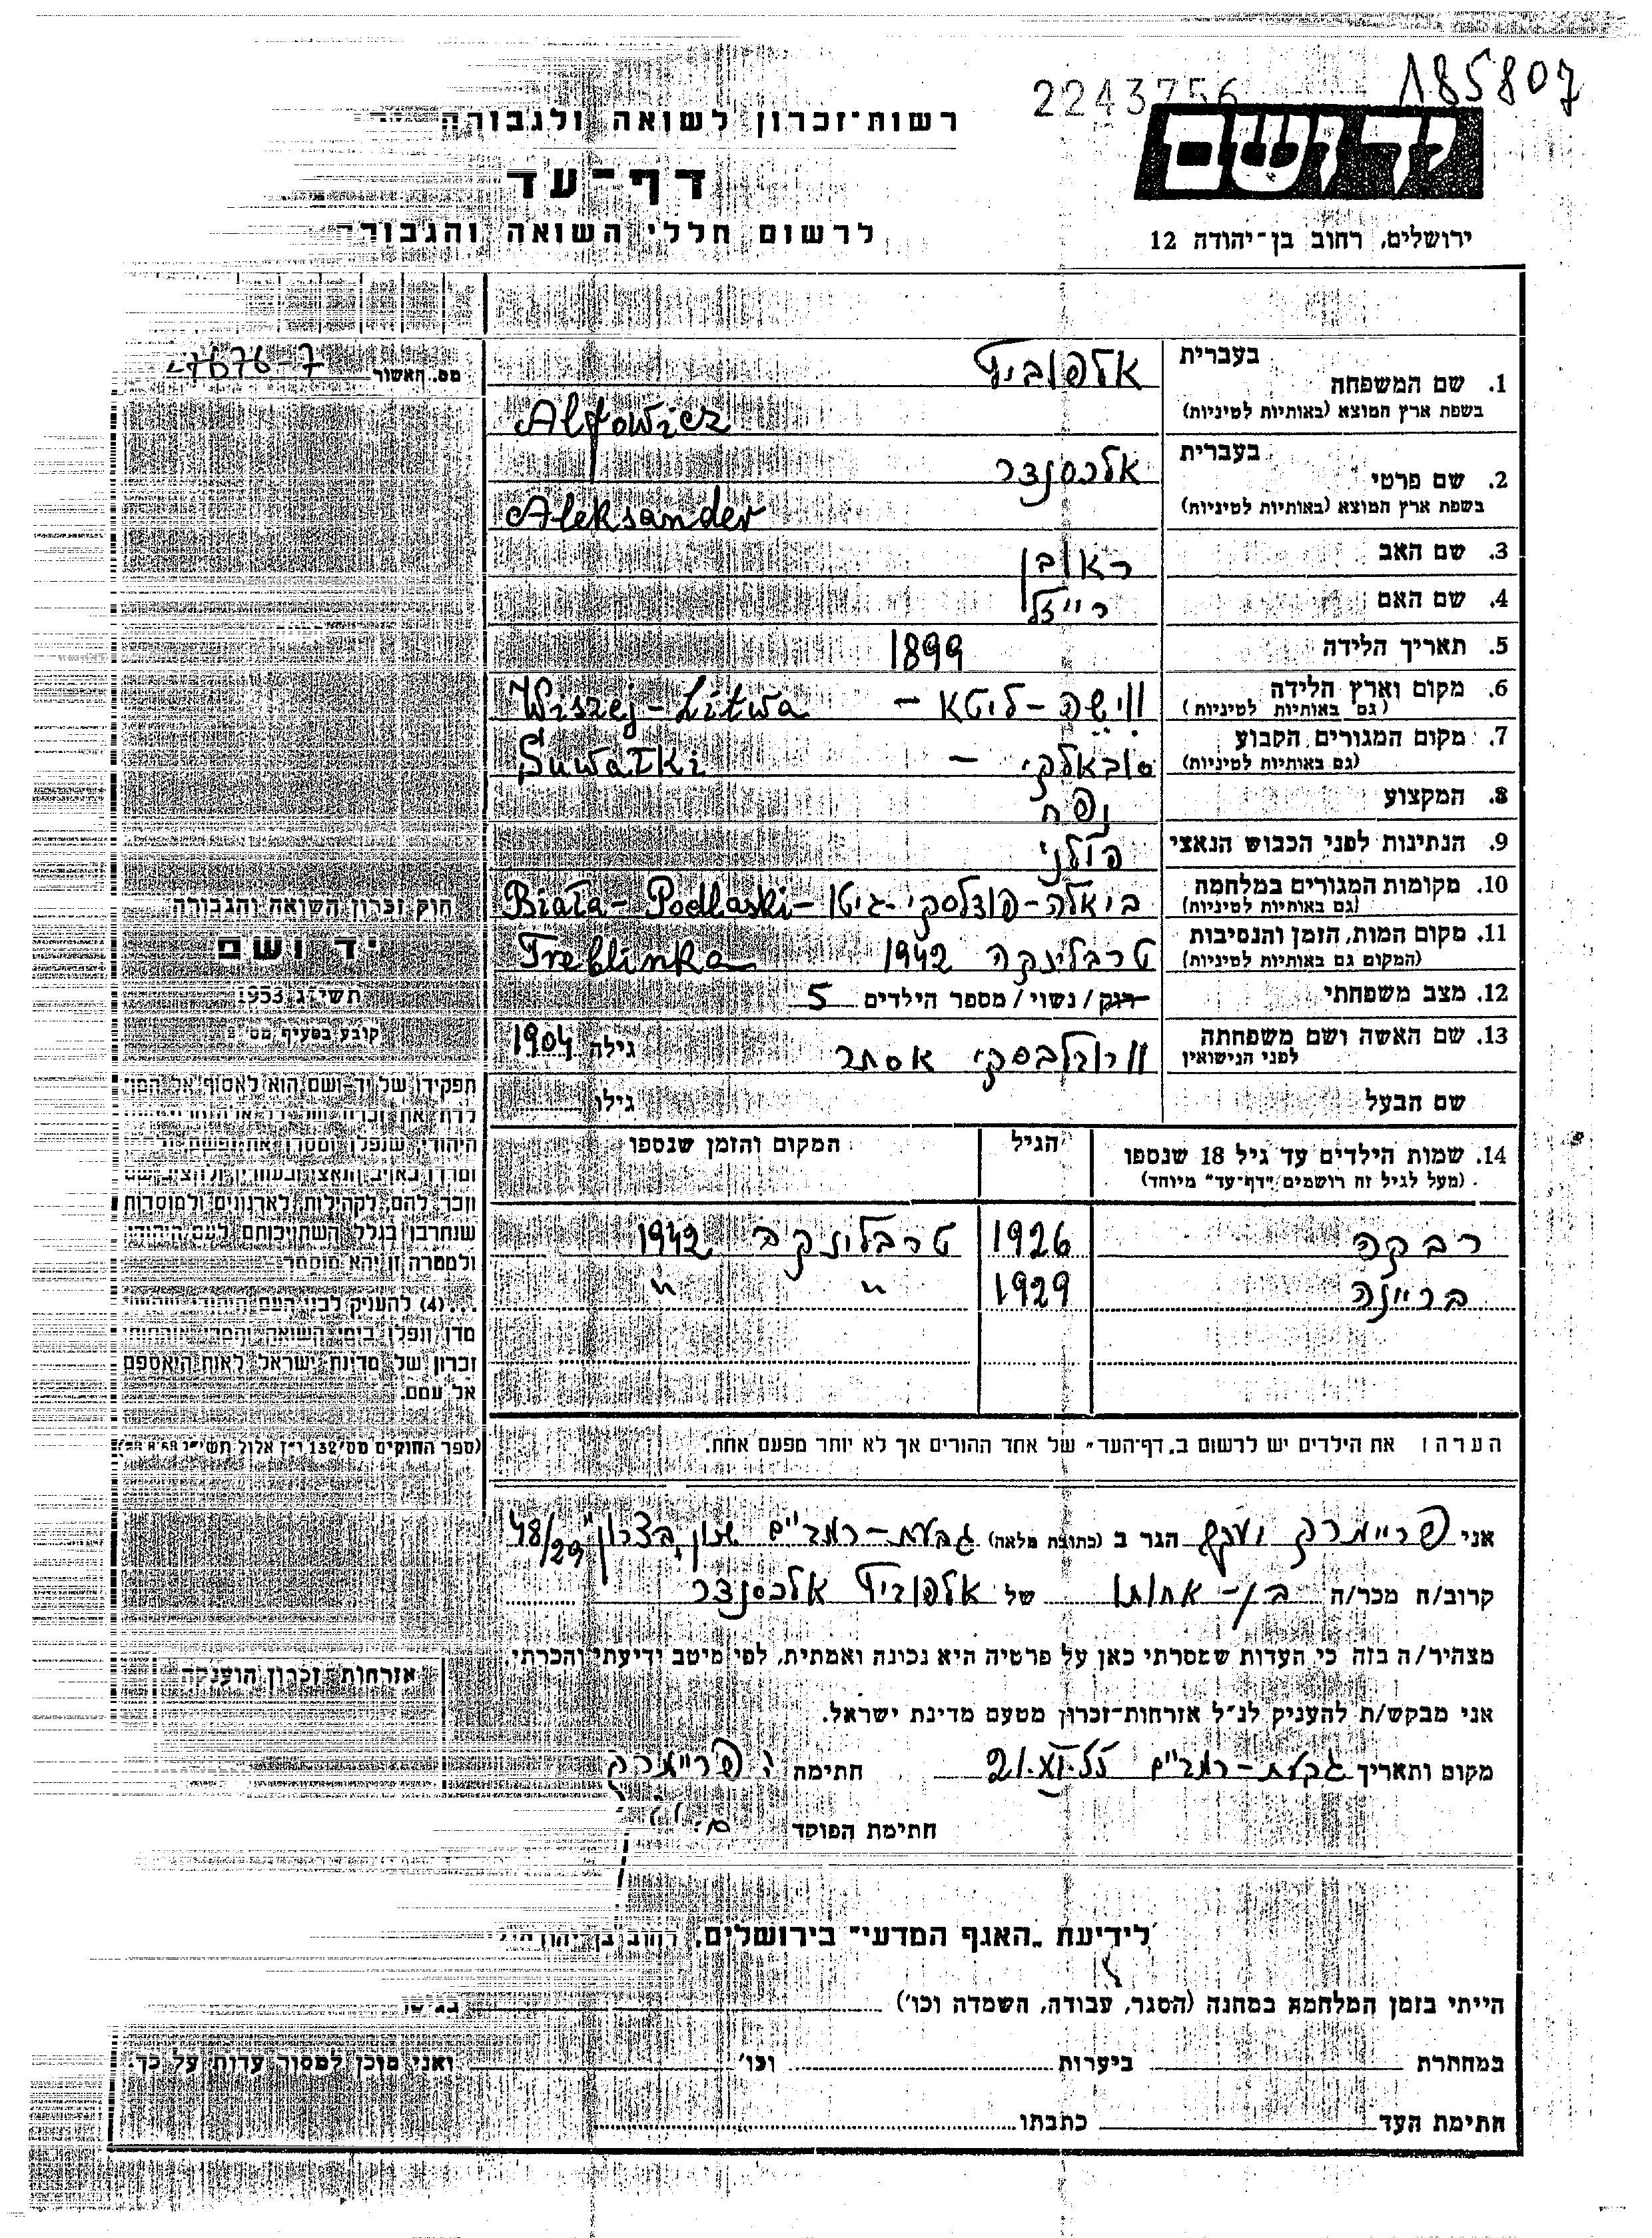 2243756
185807
יד ושם
ירושלים, רחוב בן־יהודה 12
רשות־זכרון לשואה ולגבורה
דף־עד
לרשום חללי השואה והגבורה
מס. האשור
1. שם המשפחה בעברית אלפוביץ
בשפת ארץ המוצא (באותיות לטיניות) Alfowicz
2. שם פרטי בעברית אלכסנדר
בשפת ארץ המוצא (באותיות לטיניות) Aleksander
3. שם האב ראובן
4. שם האם רייזל
5. תאריך הלידה 1899
6. מקום וארץ הלידה (גם באותיות לטיניות) ווישיי - ליטא - Wiszej - Litwa
7. מקום המגורים הקבוע (גם באותיות לטיניות) סובאלקי - Suwałki
8. המקצוע נפח
9. הנתינות לפני הכבוש הנאצי פולני
10. מקומות המגורים במלחמה (גם באותיות לטיניות) ביאלה-פודלסקי-גיטו - Biała - Podlaski
11. מקום המות, הזמן והנסיבות (המקום גם באותיות לטיניות) טרבלינקה 1942 Treblinka
12. מצב משפחתי רוק / נשוי / מספר הילדים 5
13. שם האשה ושם משפחתה לפני הנישואין אסתר גילה 1904
שם הבעל גילו
14. שמות הילדים עד גיל 18 שנספו הגיל המקום והזמן שנספו
(מעל לגיל זה רושמים "דף־עד" מיוחד)
רבקה 1926 טרבלינקה 1942
בריינה 1929 " "
הערה: את הילדים יש לרשום ב"דף־העד" של אחד ההורים אך לא יותר מפעם אחת.
חוק זכרון השואה והגבורה
יד ושם
תשי"ג 1953
קובע בסעיף מס'
תפקידו של יד־ושם הוא לאסוף אל
היהודי, שנפלו ומסרו את נפשם
וזכר להם, לקהילות, לארגונים ולמוסדות
שנחרבו בגלל השתייכותם לעם היהודי
ולמטרה זו יהא מוסמך:
...(4) להעניק לבני העם היהודי
זכרון של מדינת ישראל לאות היאספם
אל עמם.
(ספר החוקים מס' 132, י"ז אלול תשי"ג
אני פריימרק יעקב הגר ב (כתובת מלאה) גבעת-רמב"ם שכון "בצרון" 48/29
קרוב/ה מכר/ה בן-אחותו של אלפוביץ אלכסנדר
מצהיר/ה בזה כי העדות שמסרתי כאן על פרטיה היא נכונה ואמתית, לפי מיטב ידיעתי והכרתי.
אני מבקש/ת להעניק לנ"ל אזרחות־זכרון מטעם מדינת ישראל.
אזרחות־זכרון הוענקה
מקום ותאריך גבעת-רמב"ם 21.XI.55 חתימה י. פריימרק
חתימת הפוקד
לידיעת "האגף המדעי" בירושלים, רחוב בן יהודה
הייתי בזמן המלחמה במחנה (הסגר, עבודה, השמדה וכו') בגיטו
במחתרת ביערות וכו' ואני מוכן למסור עדות על כך.
חתימת העד כתבתו